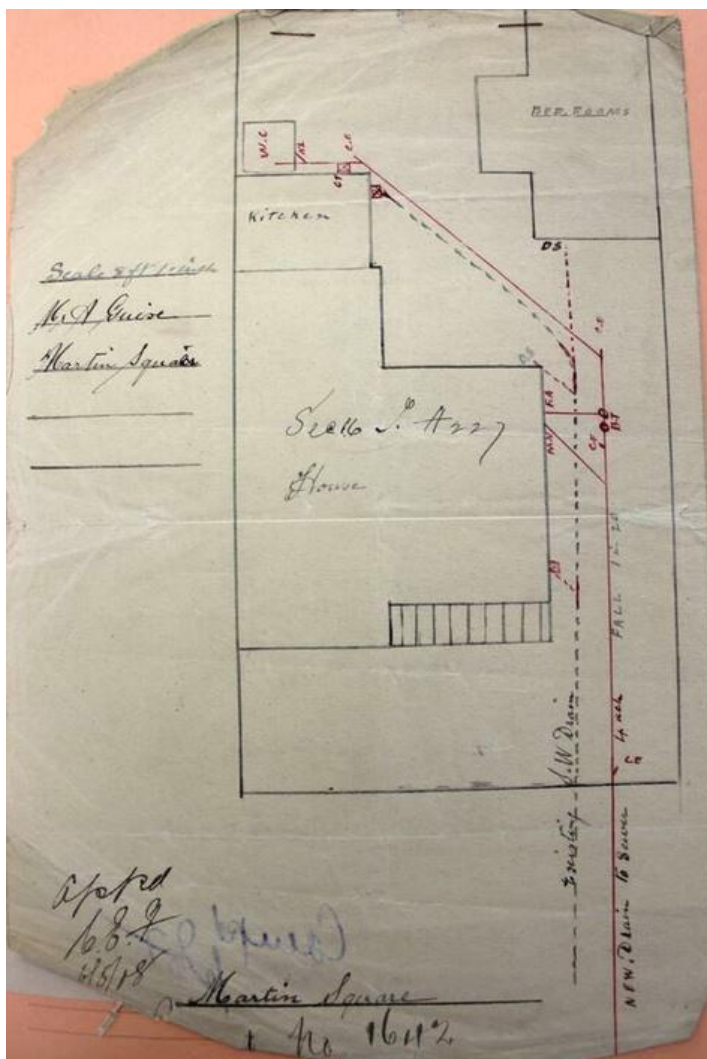 BED ROOMS
W.C
C.E
GT
Kitchen
DS
Scale 8ft 1 inch
M. A Guise
Martin Square
D.S
C.E
F.A
B.T
Sec 16 A227
House
FALL 1 IN 20
4 inch
Existing S.W Drain
C.E
NEW. Drain to Sewer
Appd
6/5/08
Martin Square
No 1642